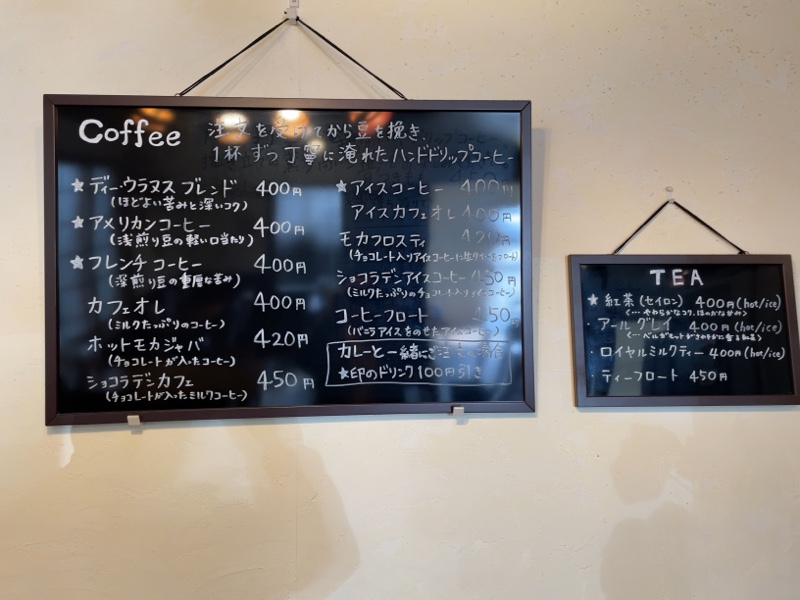 Coffee
注文を受けてから豆を挽き、
1杯ずつ丁寧に淹れたハンドドリップコーヒー
★ ディー・ウラヌス ブレンド 400円
(ほどよい苦みと深いコク)
★ アメリカンコーヒー 400円
(浅煎り豆の軽い口当たり)
★ フレンチ コーヒー 400円
(深煎り豆の重厚な苦み)
カフェオレ 400円
(ミルクたっぷりのコーヒー)
ホットモカジャバ 420円
(チョコレートが入ったコーヒー)
ショコラデンカフェ 450円
(チョコレートが入ったミルクコーヒー)
★ アイスコーヒー 400円
アイスカフェオレ 400円
モカフロスティ
(チョコレート入りアイスコーヒーに
ショコラデンアイスコーヒー 450円
(ミルクたっぷりのチョコレート入りアイスコーヒー)
コーヒーフロート 450円
(バニラアイスをのせたアイスコーヒー)
カレーと一緒にご注文の場合
★印のドリンク100円引き
TEA
★ 紅茶(セイロン) 400円(hot/ice)
(… やわらかなコク、ほのかな甘み)
・アールグレイ 400円(hot/ice)
(… ベルガモットがさわやかに香る紅茶)
・ロイヤルミルクティー 400円(hot/ice)
・ティーフロート 450円